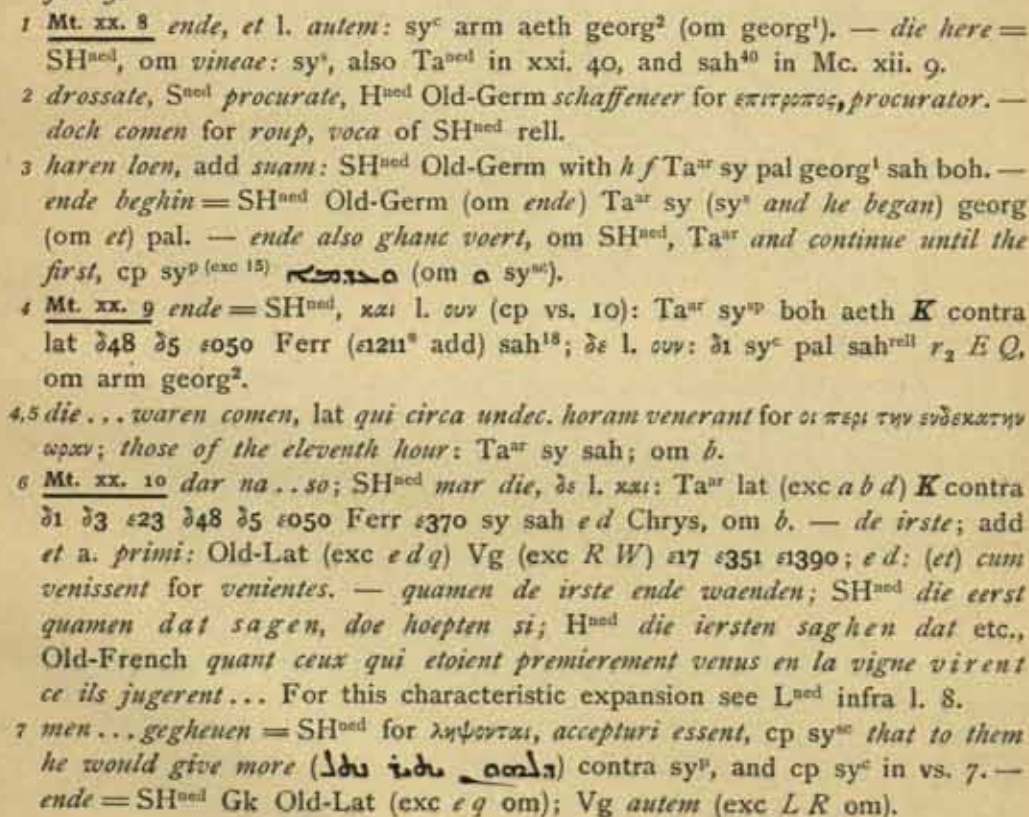 1 Mt. xx. 8 ende, et l. autem: syᶜ arm aeth georg² (om georg¹). — die here =
SHⁿᵉᵈ, om vineae: syˢ, also Taⁿᵉᵈ in xxi. 40, and sah⁴⁰ in Mc. xii. 9.
2 drossate, Sⁿᵉᵈ procurate, Hⁿᵉᵈ Old-Germ schaffeneer for επιτροπος, procurator. —
doch comen for roup, voca of SHⁿᵉᵈ rell.
3 haren loen, add suam: SHⁿᵉᵈ Old-Germ with h f Taᵃʳ sy pal georg¹ sah boh. —
ende beghin = SHⁿᵉᵈ Old-Germ (om ende) Taᵃʳ sy (syˢ and he began) georg
(om et) pal. — ende also ghanc voert, om SHⁿᵉᵈ, Taᵃʳ and continue until the
first, cp syᵖ ⁽ᵉˣᶜ ¹⁵⁾ ܘܥܕܡܐ (om ܘ syˢᶜ).
4 Mt. xx. 9 ende = SHⁿᵉᵈ, και l. ουν (cp vs. 10): Taᵃʳ syˢᵖ boh aeth K contra
lat δ48 δ5 ε050 Ferr (ε1211* add) sah¹⁸; δε l. ουν: δ1 syᶜ pal sahʳᵉˡˡ r₂ E Q,
om arm georg².
4,5 die ... waren comen, lat qui circa undec. horam venerant for οι περι την ενδεκατην
ωραν; those of the eleventh hour: Taᵃʳ sy sah; om b.
6 Mt. xx. 10 dar na .. so; SHⁿᵉᵈ mar die, δε l. και: Taᵃʳ lat (exc a b d) K contra
δ1 δ3 ε23 δ48 δ5 ε050 Ferr ε370 sy sah e d Chrys, om b. — de irste; add
et a. primi: Old-Lat (exc e d q) Vg (exc R W) ε17 ε351 ε1390; e d: (et) cum
venissent for venientes. — quamen de irste ende waenden; SHⁿᵉᵈ die eerst
quamen dat sagen, doe hoepten si; Hⁿᵉᵈ die iersten saghen dat etc.,
Old-French quant ceux qui etoient premierement venus en la vigne virent
ce ils jugerent ... For this characteristic expansion see Lⁿᵉᵈ infra l. 8.
7 men ... gegheuen = SHⁿᵉᵈ for ληψονται, accepturi essent, cp syˢᶜ that to them
he would give more (ܕܠܗܘܢ ܝܬܝܪ ܢܬܠ) contra syᵖ, and cp syᶜ in vs. 7. —
ende = SHⁿᵉᵈ Gk Old-Lat (exc e q om); Vg autem (exc L R om).